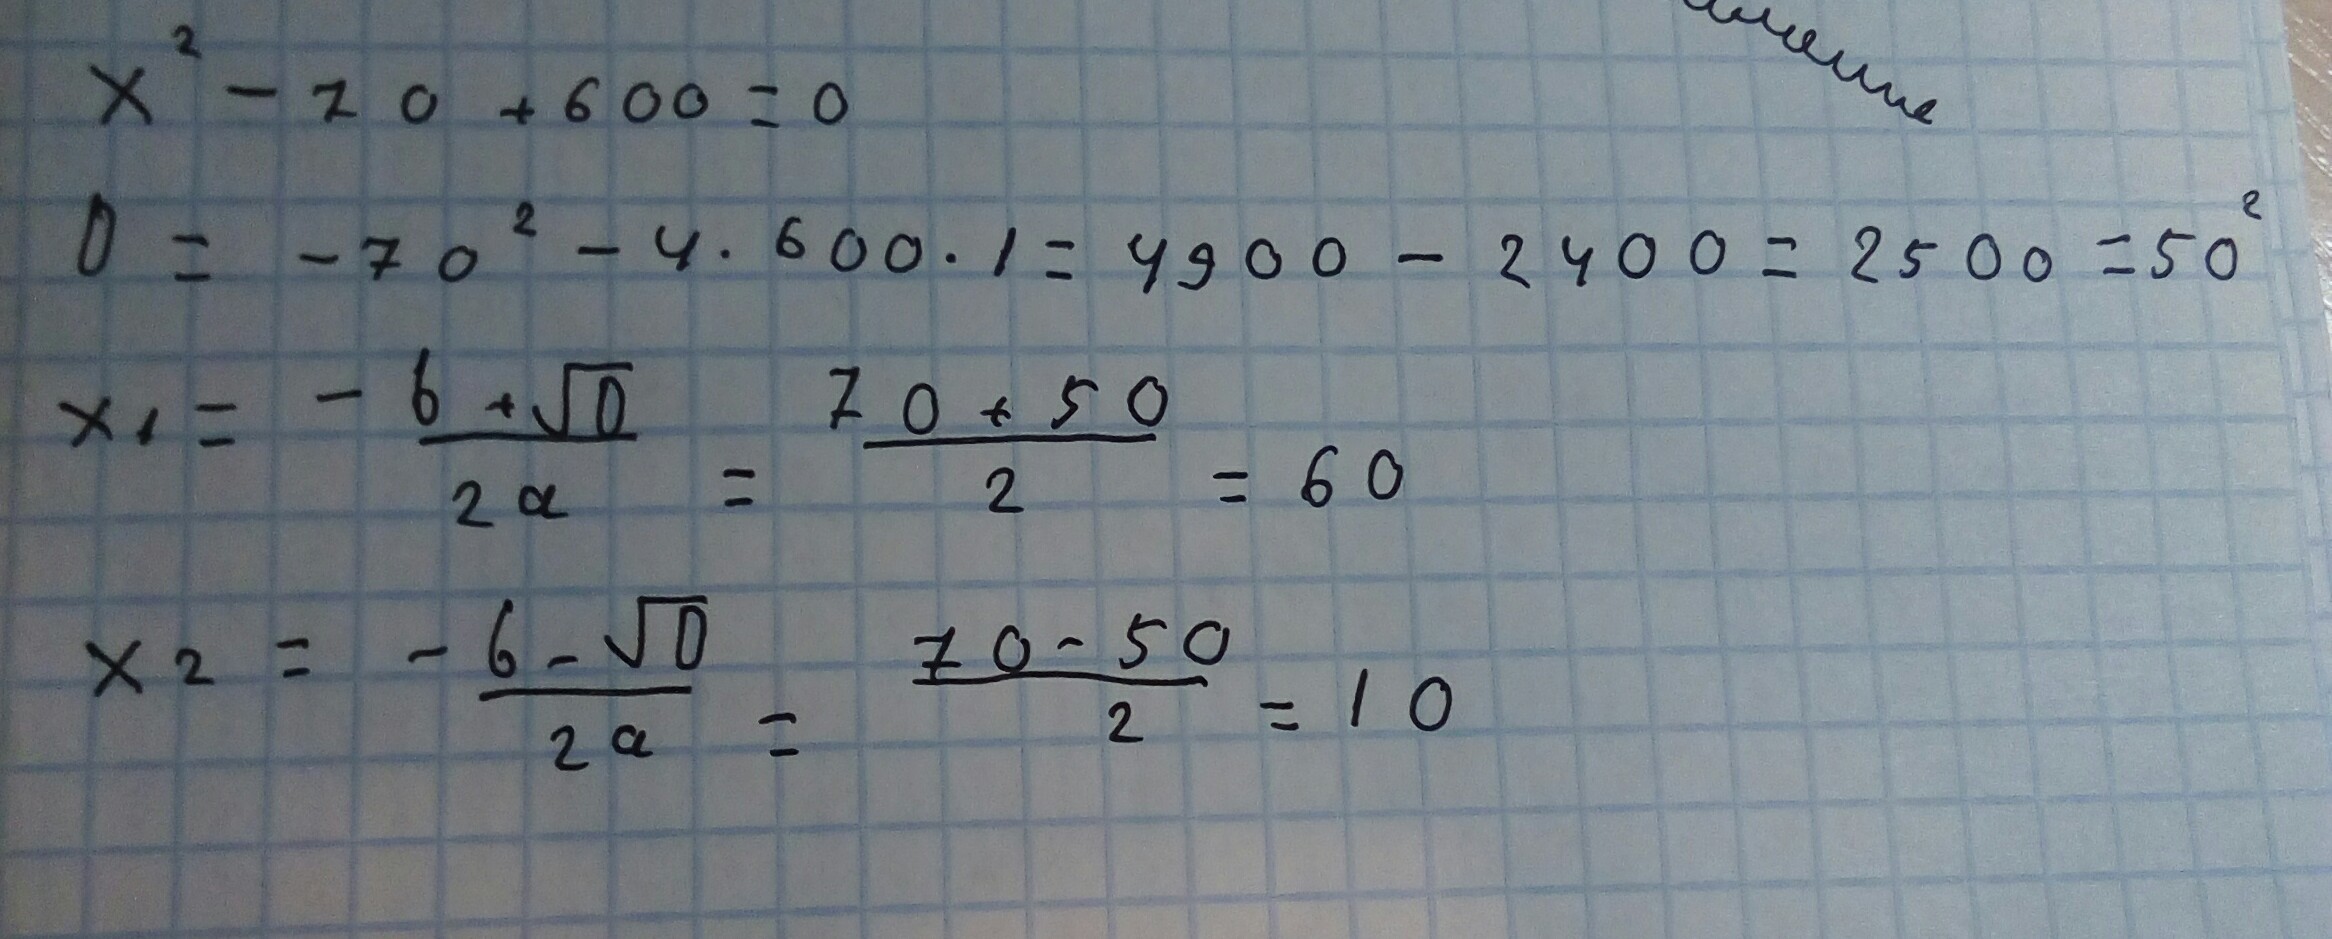 x² - 70 + 600 = 0
D = -70² - 4 · 600 · 1 = 4900 - 2400 = 2500 = 50²
x1 = -b + √D / 2a = 70 + 50 / 2 = 60
x2 = -b - √D / 2a = 70 - 50 / 2 = 10